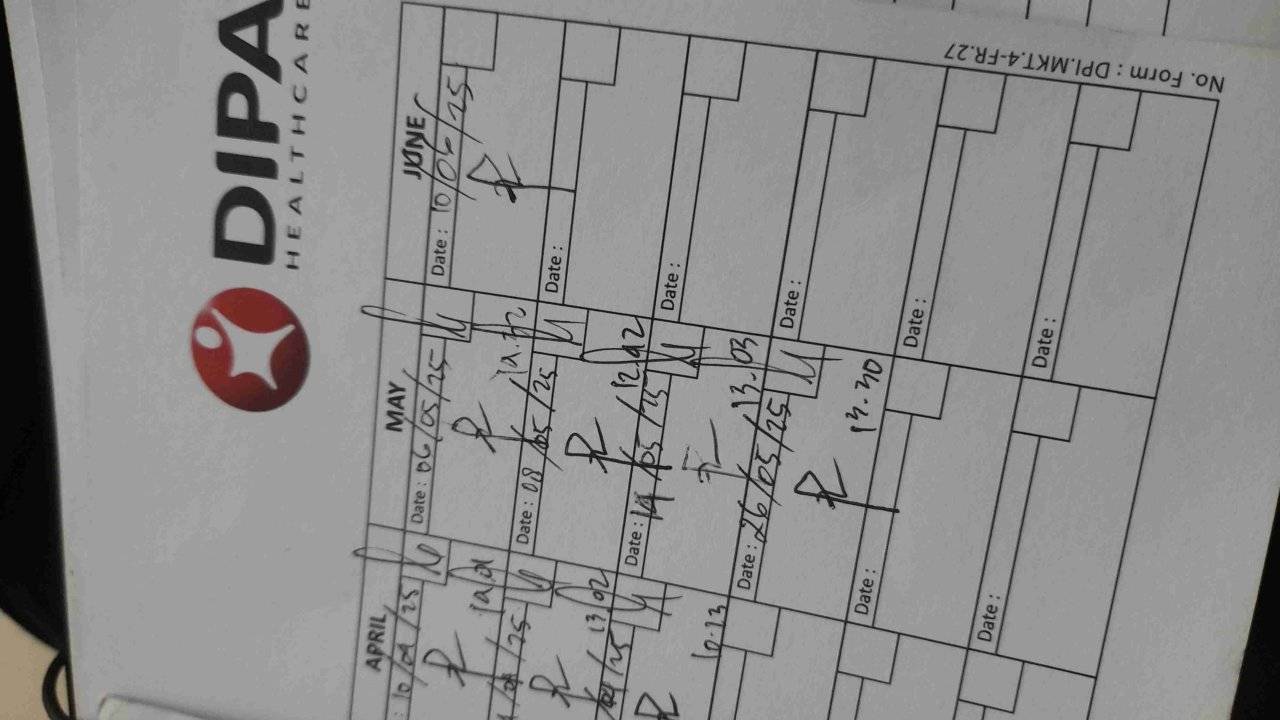 DIPA
HEALTHCARE
APRIL
10/04/25
13.02
10.13
MAY
Date : 06/05/25
Date : 08/05/25
12.42
Date : 14/05/25
13.03
Date : 26/05/25
13.30
Date :
Date :
JUNE
Date : 10/06/25
Date :
Date :
Date :
Date :
Date :
No. Form : DPI.MKT.4-FR.27